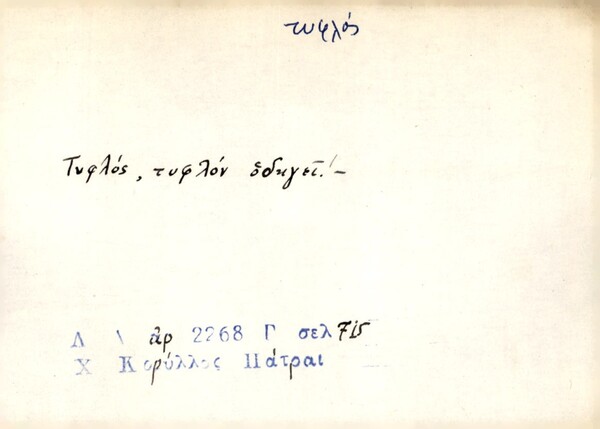 τυφλός
Τυφλός, τυφλόν ὁδηγεῖ! –
Λ Α ἀρ 2268 Γ σελ 715
Χ Κορύλλος Πάτραι